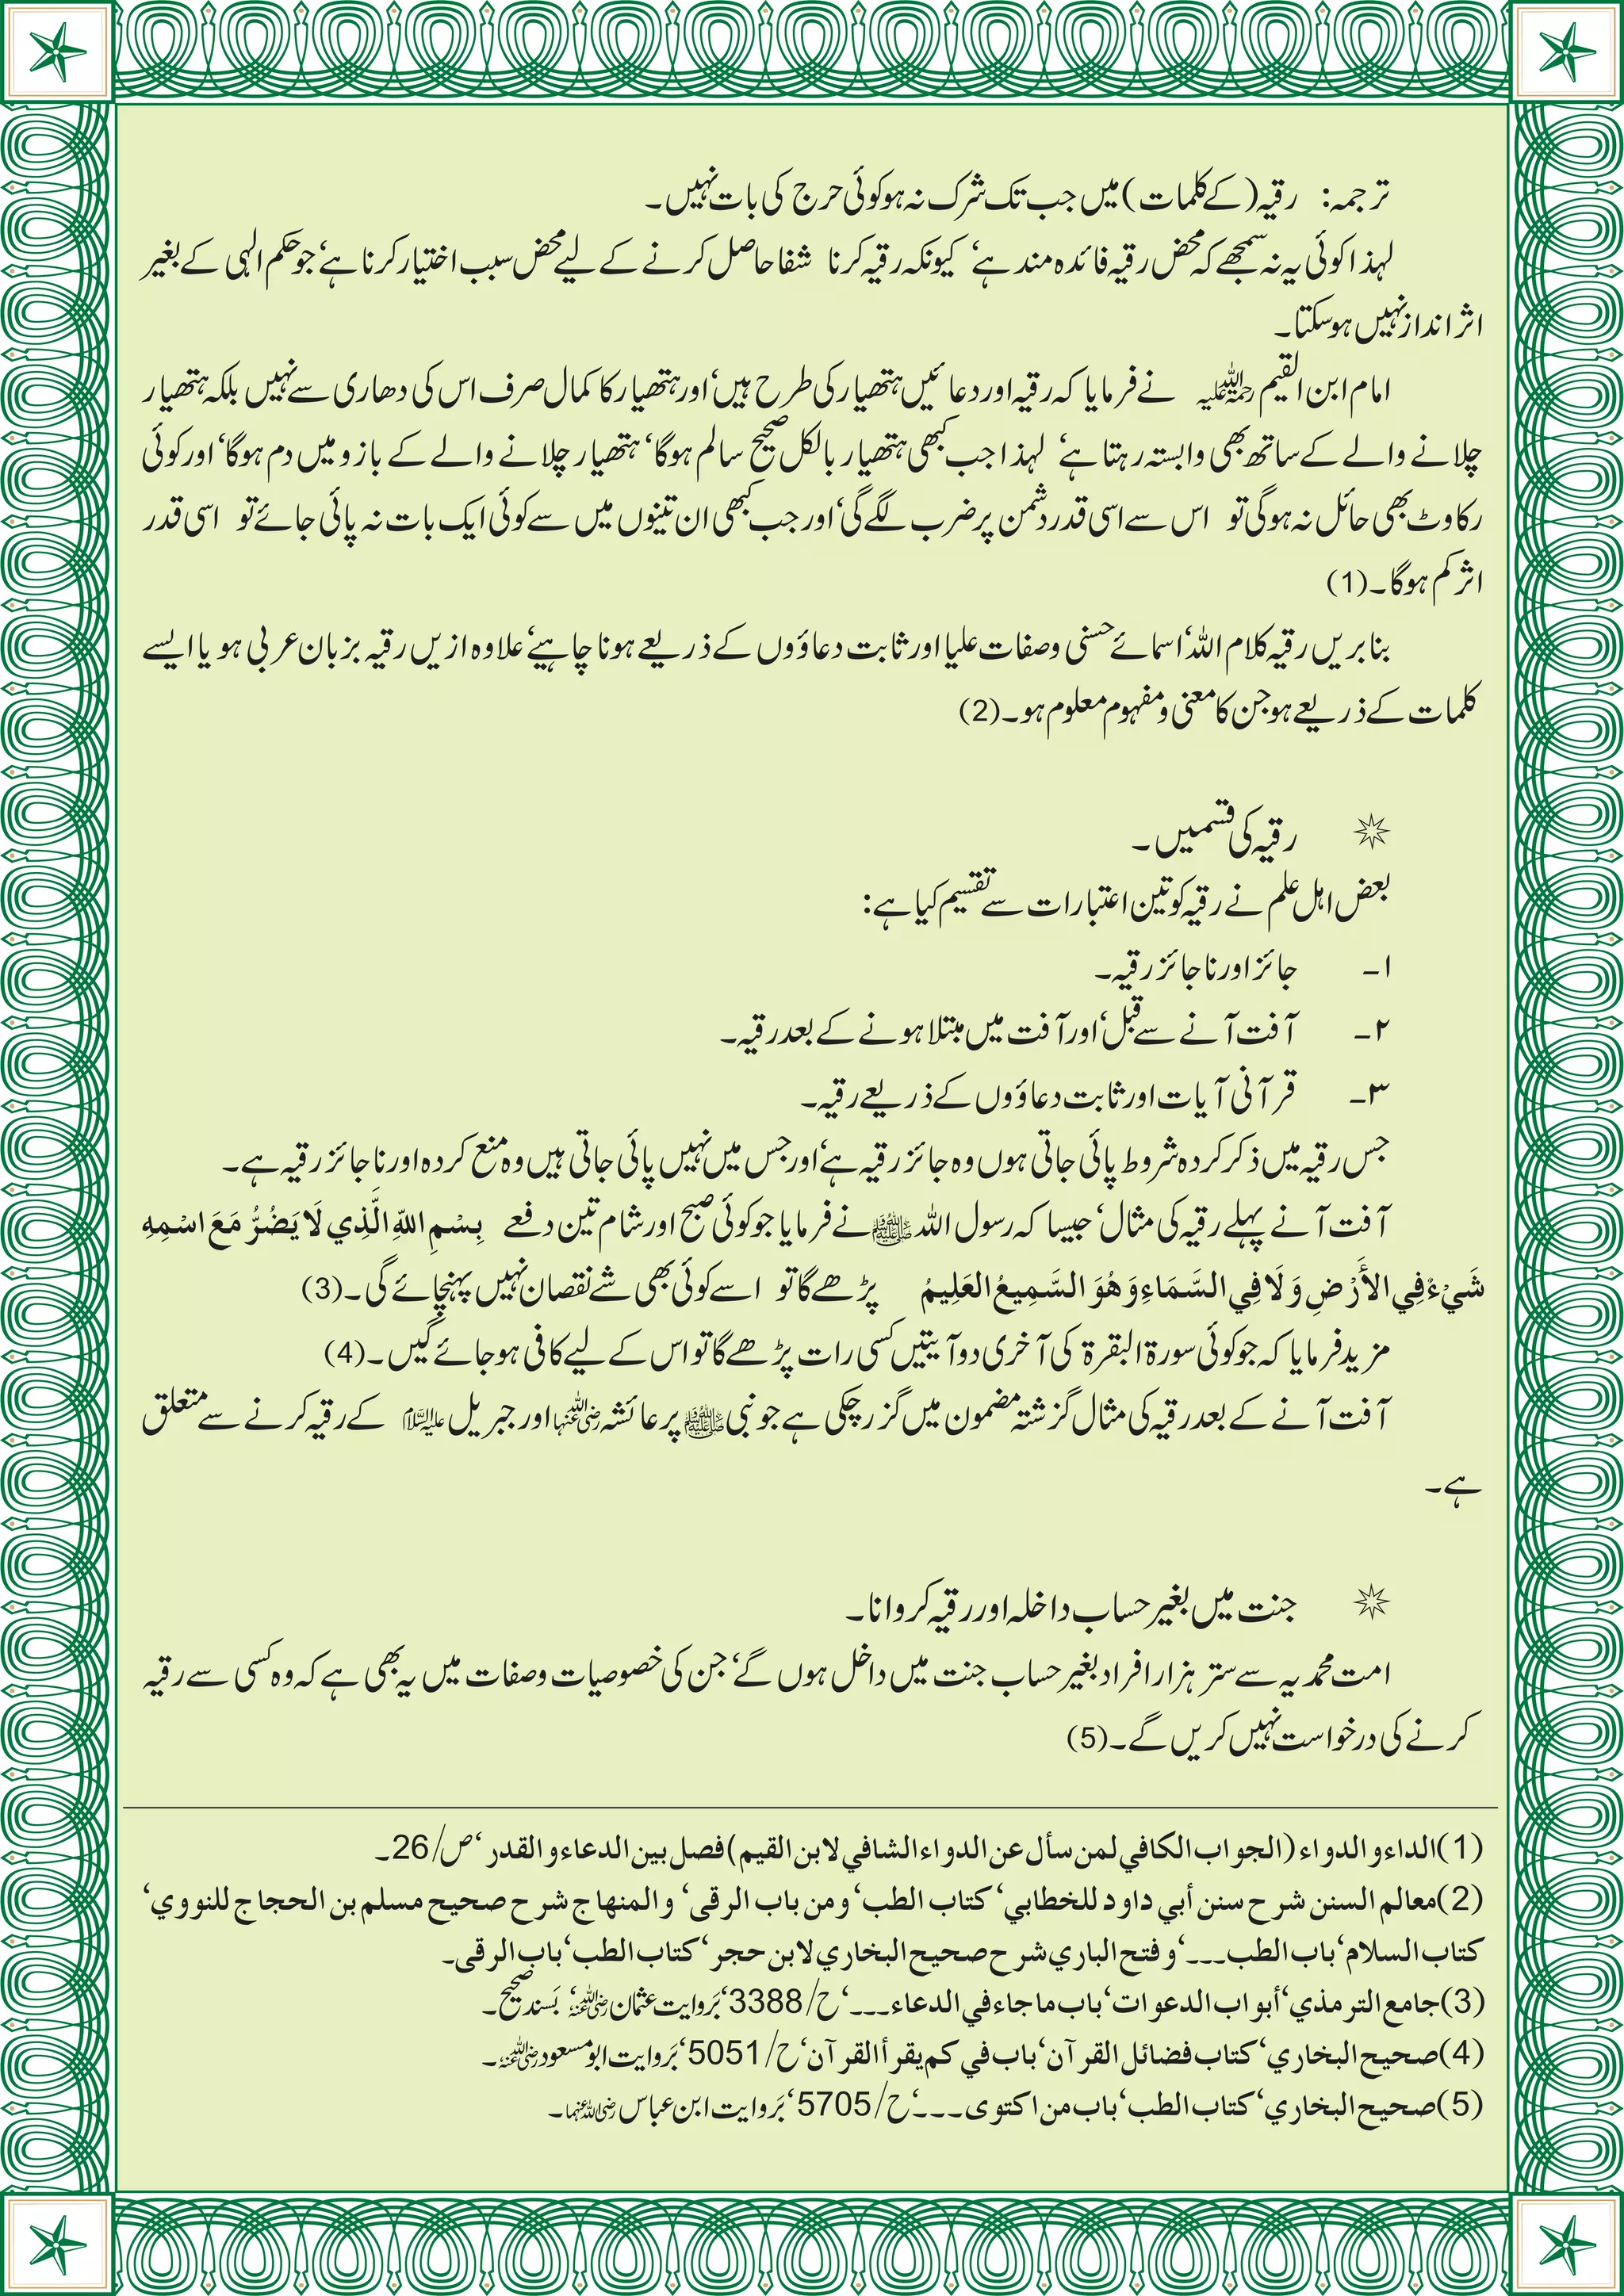 ترجمہ: رقیہ (کے کلمات) میں جب تک شرک نہ ہو کوئی حرج کی بات نہیں۔
لہذا کوئی یہ نہ سمجھے کہ محض رقیہ فائدہ مند ہے‘ کیونکہ رقیہ کرنا شفا حاصل کرنے کے لیے محض سبب اختیار کرنا ہے‘ جو حکم الہی کے بغیر
اثر انداز نہیں ہو سکتا۔
امام ابن القیم رحمۃ اللہ علیہ نے فرمایا کہ رقیہ اور دعائیں ہتھیار کی طرح ہیں‘ اور ہتھیار کا کمال صرف اس کی دھاری سے نہیں بلکہ ہتھیار
چلانے والے کے ساتھ بھی وابستہ رہتا ہے‘ لہذا جب کبھی ہتھیار بالکل صحیح سالم ہوگا‘ ہتھیار چلانے والے کے بازو میں دم ہوگا‘ اور کوئی
رکاوٹ بھی حائل نہ ہوگی تو اس سے اسی قدر دشمن پر ضرب لگے گی‘ اور جب کبھی ان تینوں میں سے کوئی ایک بات نہ پائی جائے تو اسی قدر
اثر کم ہوگا۔(1)
بنابریں رقیہ کلام اللہ‘ اسمائے حسنی وصفات علیا اور ثابت دعاؤوں کے ذریعے ہونا چاہیے‘ علاوہ ازیں رقیہ بزبان عربی ہو یا ایسے
کلمات کے ذریعے ہو جن کا معنی و مفہوم معلوم ہو۔(2)
رقیہ کی قسمیں۔
بعض اہل علم نے رقیہ کو تین اعتبارات سے تقسیم کیا ہے:
۱- جائز اور ناجائز رقیہ۔
۲- آفت آنے سے قبل‘ اور آفت میں مبتلا ہونے کے بعد رقیہ۔
۳- قرآنی آیات اور ثابت دعاؤوں کے ذریعے رقیہ۔
جس رقیہ میں ذکر کردہ شروط پائی جاتی ہوں وہ جائز رقیہ ہے‘ اور جس میں نہیں پائی جاتی ہیں وہ منع کردہ اور ناجائز رقیہ ہے۔
آفت آنے پہلے رقیہ کی مثال‘ جیسا کہ رسول اللہ ﷺ نے فرمایا جو کوئی صبح اور شام تین دفعے بِسْمِ اللهِ الَّذِي لَا يَضُرُّ مَعَ اسْمِهِ
شَيْءٌ فِي الأَرْضِ وَلَا فِي السَّمَاءِ وَهُوَ السَّمِيعُ العَلِيمُ پڑھے گا تو اسے کوئی بھی شے نقصان نہیں پہنچائے گی۔(3)
مزید فرمایا کہ جو کوئی سورۃ البقرۃ کی آخری دو آیتیں کسی رات پڑھے گا تو اس کے لیے کافی ہو جائے گیں۔(4)
آفت آنے کے بعد رقیہ کی مثال گزشتہ مضمون میں گزر چکی ہے جو نبی ﷺ پر عائشہ رضی اللہ عنہا اور جبریل علیہ السلام کے رقیہ کرنے سے متعلق
ہے۔
جنت میں بغیر حساب داخلہ اور رقیہ کروانا۔
امت محمدیہ سے ستر ہزار افراد بغیر حساب جنت میں داخل ہوں گے‘ جن کی خصوصیات وصفات میں یہ بھی ہے کہ وہ کسی سے رقیہ
کرنے کی درخواست نہیں کریں گے۔(5)
(1) الداء والدواء (الجواب الكافي لمن سأل عن الدواء الشافي لابن القيم) فصل بين الدعاء والقدر‘ ص/26۔
(2) معالم السنن شرح سنن أبي داود للخطابي‘ كتاب الطب‘ ومن باب الرقى‘ والمنهاج شرح صحيح مسلم بن الحجاج للنووي‘
كتاب السلام‘ باب الطب۔۔۔‘ وفتح الباري شرح صحيح البخاري لابن حجر‘ كتاب الطب‘ باب الرقى۔
(3) جامع الترمذي‘ أبواب الدعوات‘ باب ما جاء في الدعاء۔۔۔‘ ح/3388‘ بَروایت عثمان رضی اللہ عنہ‘ بَسند صحیح۔
(4) صحيح البخاري‘ كتاب فضائل القرآن‘ باب في كم يقرأ القرآن‘ ح/5051‘ بَروایت ابو مسعود رضی اللہ عنہ۔
(5) صحيح البخاري‘ كتاب الطب‘ باب من اكتوى۔۔۔‘ ح/5705‘ بَروایت ابن عباس رضی اللہ عنہما۔